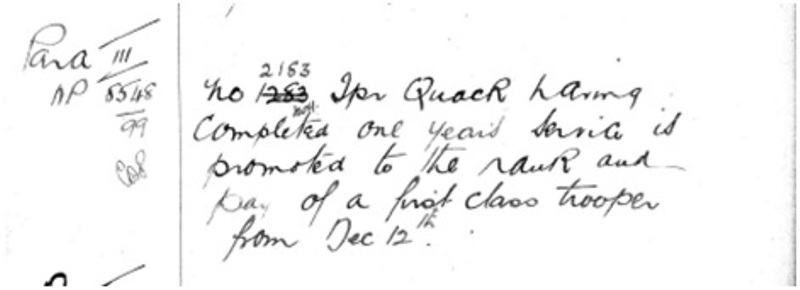 Para III
AP 8548
99
2163
No 1283 Tpr Quack having
Completed one years service is
promoted to the rank and
pay of a first class trooper
from Dec 12th.